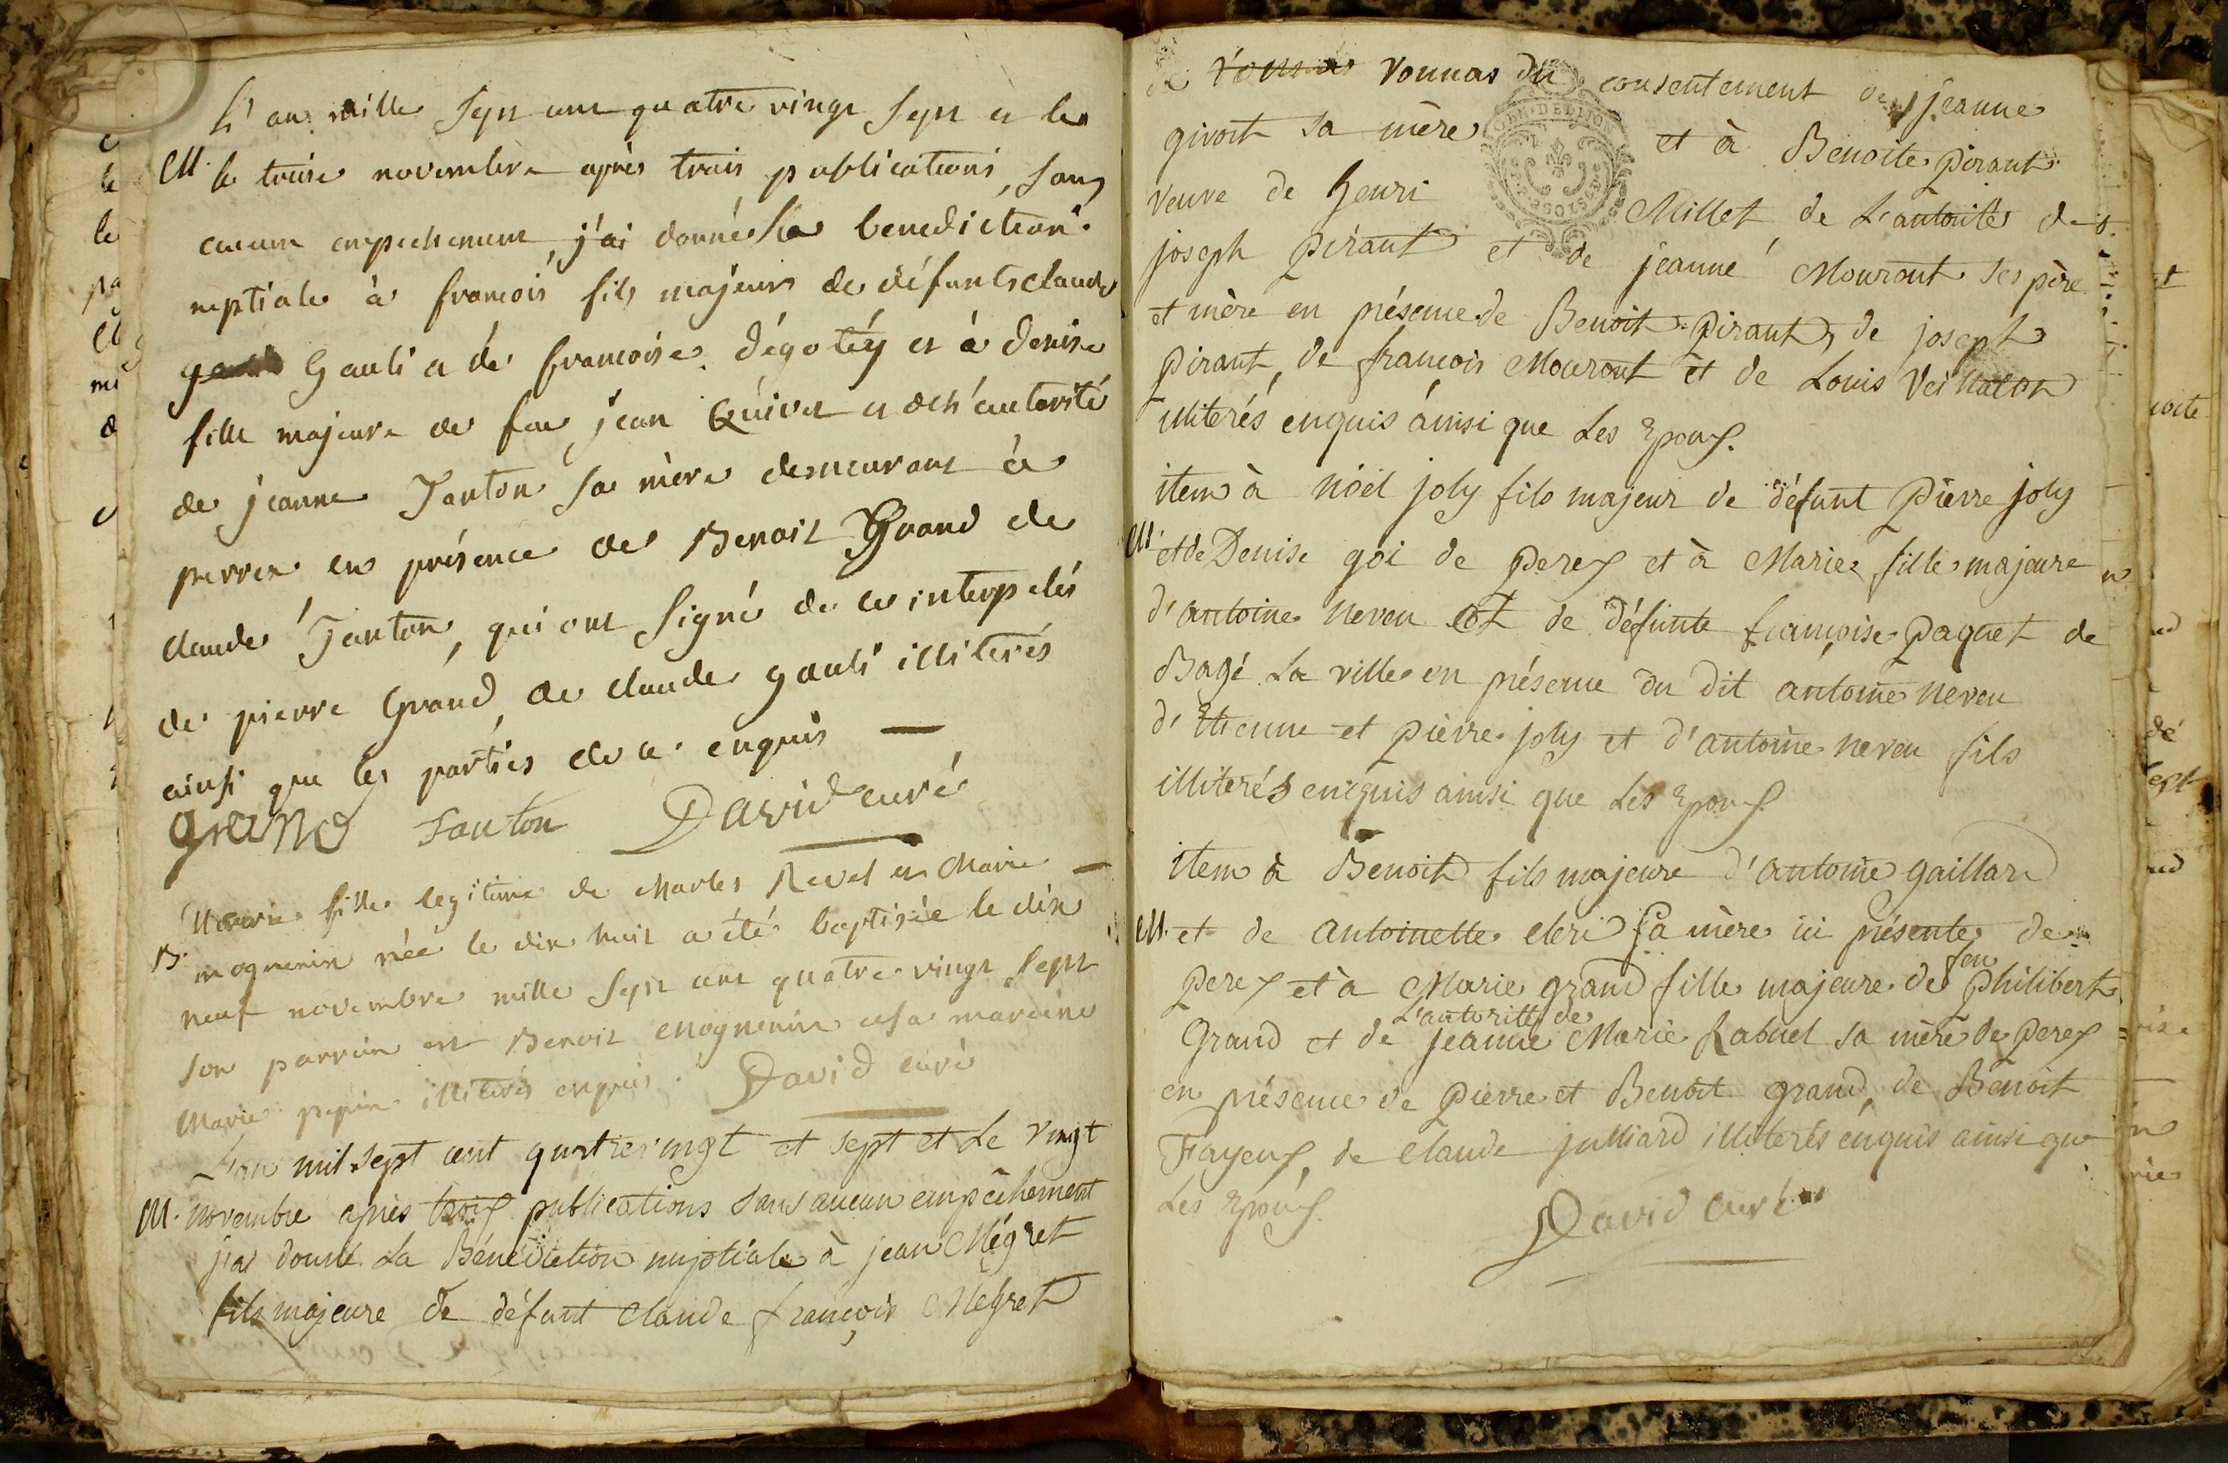 L'an mille sept cent quatre vingt sept et le
M. le treise novembre après trois publications, sans
aucun empechement, j'ai donné la benediction
nuptiale à francois fils majeur de défunts claude
Gauli et de francoise dégotéy et à denise
fille majeure de feu jean Quivet et de l'autorité
de jeanne Janton sa mère demeurant à
perrex en présence de Benoit Grand de
claude Janton, qui ont signé de ce interpelés
de pierre Grand, de claude gauli illiterés
ainsi que les parties de ce enquis
Grand Janton David curé
Marie fille legitime de charles Revel et Marie
B. mognenin née le dix huit a été baptisée le dix
neuf novembre mille sept cent quatre vingt sept
son parrain est Benoit Mognenin et sa maraine
Marie pepin illiterés enquis. David curé
L'an mil sept cent quatrevingt et sept et Le vingt
M. novembre après trois publications sans aucun empêchement
j'ai donné La Bénédiction nuptiale à jean Mégret
fils majeure de défunt Claude françois Mégret
de Vonnas Vonnas du consentement de jeanne
givort sa mère et à Benoite pirant
veuve de henri Millet de L'autorité de
joseph pirant et de jeanne Mouront ses père
et mère en présence de Benoit pirant, de joseph
pirant, de françois Mouront et de Louis
illiterés enquis ainsi que Les Epoux.
item à Nöel joly fils majeur de défunt pierre joly
M. et de Denise goi de perex et à Marie fille majeure
d'antoine neveu Et de défunte françoise paquet de
Bagé La ville en présence du dit antoine neveu
d'Etienne et pierre joly et d'antoine neveu fils
illiterés enquis ainsi que Les Epoux
item à Benoit fils majeure d'antoine gaillard
M. et de antoinette cleri sa mère ici présente de
perex et à Marie grand fille majeure de feu philibert
Grand et de L'autorité de jeanne Marie Rabuel sa mère de perex
en présence de pierre et Benoit grand, de Benoit
Fayeux, de claude julliard illiterés enquis ainsi que
Les Epoux.
David curé